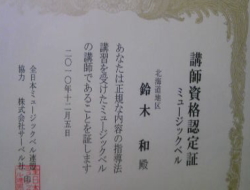 講師資格認定証
ミュージックベル
北海道地区
鈴木 和 殿
あなたは正規な内容の指導法
講習を受けたミュージックベル
の講師であることを証します
二〇一〇年十二月五日
全日本ミュージックベル連盟
協力 株式会社サーベル社